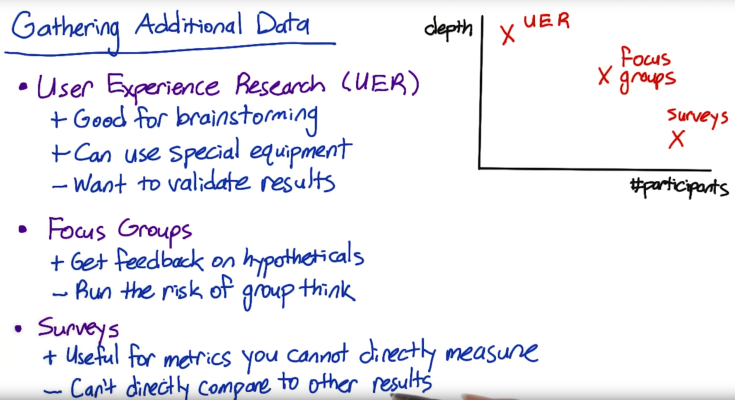 Gathering Additional Data
• User Experience Research (UER)
+ Good for brainstorming
+ Can use special equipment
- Want to validate results
• Focus Groups
+ Get feedback on hypotheticals
- Run the risk of group think
• Surveys
+ Useful for metrics you cannot directly measure
- Can't directly compare to other results
depth
X UER
Focus
X groups
surveys
X
#participants